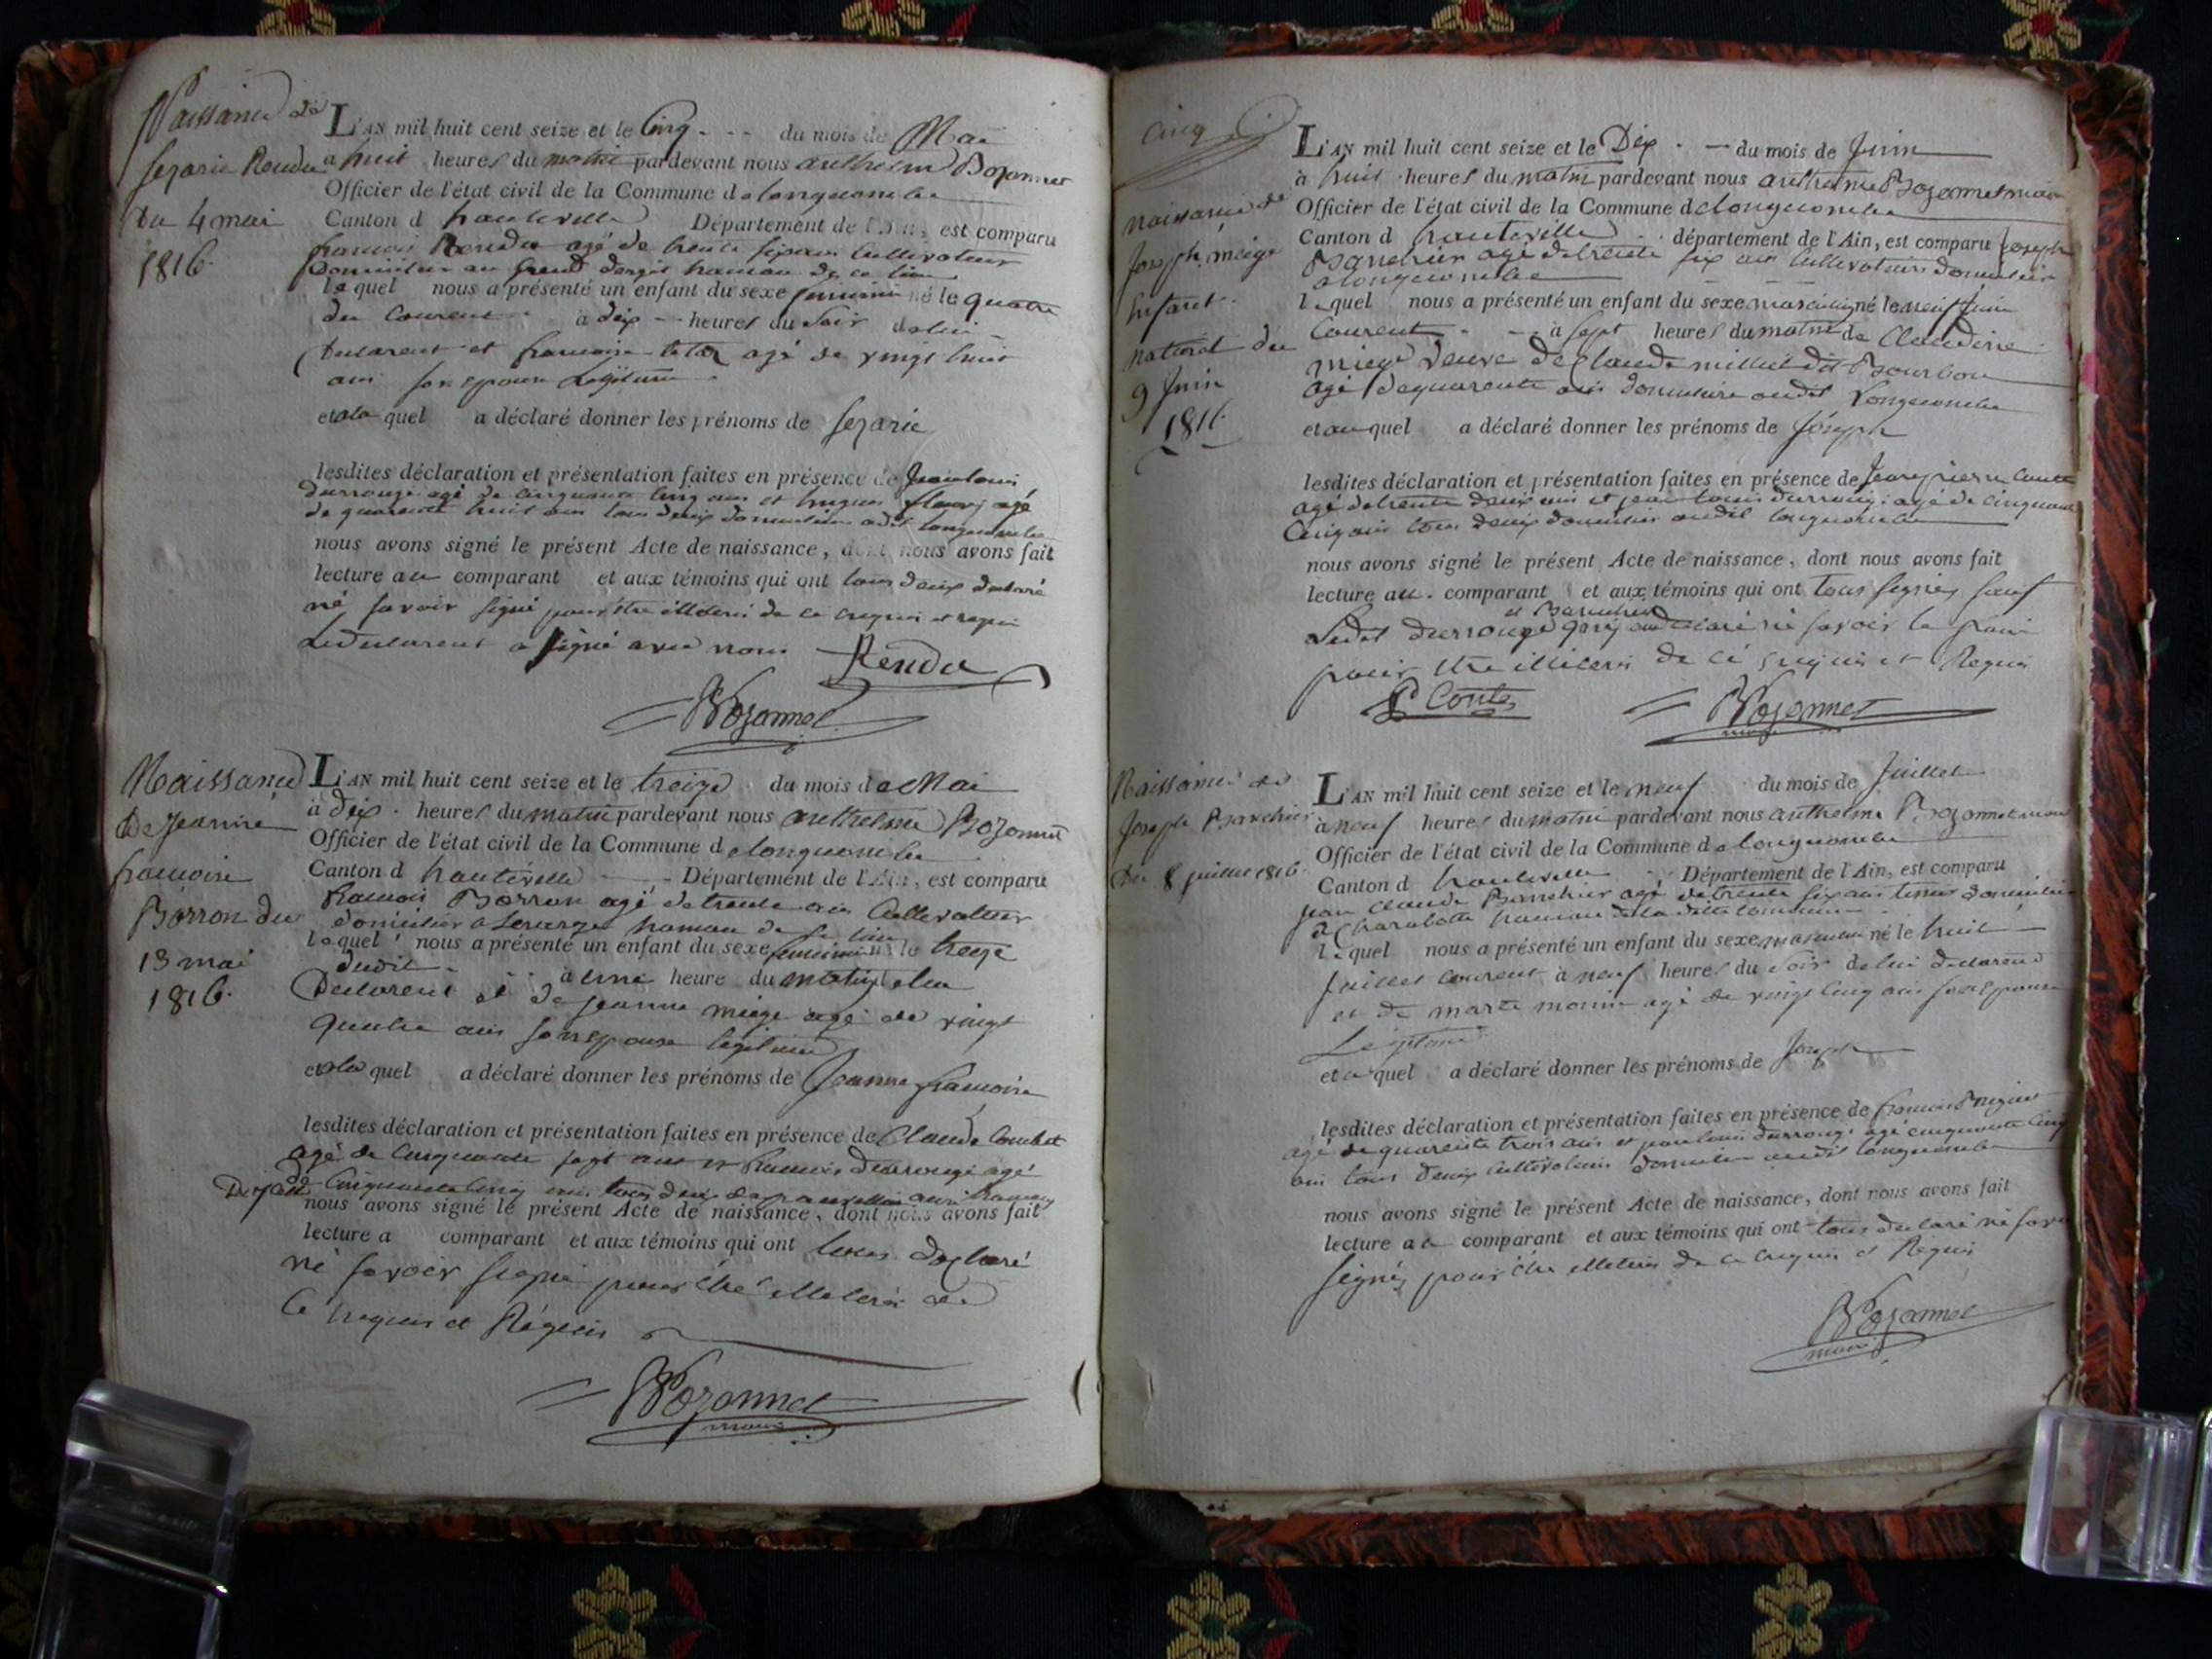 Naissance de
Sezarie Rendu
Du 4 mai
1816.
L'AN mil huit cent seize et le Cinq du mois de Mai
a huit heures du matin pardevant nous anthelme Bozonnet
Officier de l'état civil de la Commune de longecombe
Canton d hauteville Département de l'Ain, est comparu
francois Rendu agé de trente six ans Cultivateur
Domicilier au Grand dergit hamau de ce lieu
lequel nous a présenté un enfant du sexe feminin né le quatre
du Courent à dix heures du soir de lui
Declarent et francoise agé de vingt huit
ans son epouse Legitime
et ala quel a déclaré donner les prénoms de Sezarie
lesdites déclaration et présentation faites en présence de Jean louis
durrouge agé de cinquante Cinq ans et hugues fleury agé
de quarente huit ans tous deux domicilier audit longecombe
nous avons signé le présent Acte de naissance, dont nous avons fait
lecture au comparant et aux témoins qui ont tous deux declaré
né savoir signé pour étre illiteré de ce enquis et requis
Ledeclarent a signé avec nous Rendu
Bozonnet
Naissance
De Jeanne
francoise
Borron du
13 mai
1816.
L'AN mil huit cent seize et le treize du mois de Mai
à dix heures du matin pardevant nous anthelme Bozonnet
Officier de l'état civil de la Commune de longecombe
Canton d hauteville Département de l'Ain, est comparu
francois Borron agé de trente ans Cultivateur
domicilier a hamau de ce lieu
lequel nous a présenté un enfant du sexe feminin né le treize
dudit à une heure du matin de lui
Declarent et de jeanne miege agé de vingt
quatre ans son epouse legitime
et ala quel a déclaré donner les prénoms de Jeanne francoise
lesdites déclaration et présentation faites en présence de Claude
agé de Cinquante sept ans et francois durrouge agé
de Cinquante Cinq ans tous deux
nous avons signé le présent Acte de naissance, dont nous avons fait
lecture a comparant et aux témoins qui ont tous declaré
né savoir signé pour étre illiteré de
Ce enquis et Réquis
Bozonnet
maire
Cinq
naissance de
Joseph miège
Enfant
naturel du
9 Juin
1816
L'AN mil huit cent seize et le Dix du mois de Juin
à huit heures du matin pardevant nous anthelme Bozonnet maire
Officier de l'état civil de la Commune de longecombe
Canton d hauteville département de l'Ain, est comparu Joseph
Banchier agé de trente six ans Cultivateur domicilier
a longecombe
lequel nous a présenté un enfant du sexe masculin né le neuf Juin
Courent à sept heures du matin de Claudine
miege veuve de Claude millet dit Bourbon
agé de quarente ans domicilière audit Longecombe
et au quel a déclaré donner les prénoms de Joseph
lesdites déclaration et présentation faites en présence de Jean pierre Conte
agé de trente deux ans et jean louis durrouge agé de Cinquante
Cinq ans tous deux domicilier audit longecombe
nous avons signé le présent Acte de naissance, dont nous avons fait
lecture au comparant et aux témoins qui ont tous signés sauf
et Banchier
Ledit durrouge qui ont declaré né savoir le faire
pour étre illiteré de cé enquis et Requis
P Conte Bozonnet
maire
Naissance de
Joseph Banchier
Du 8 juillet 1816
L'AN mil huit cent seize et le neuf du mois de Juillet
à neuf heures du matin pardevant nous anthelme Bozonnet maire
Officier de l'état civil de la Commune de longecombe
Canton d hauteville Département de l'Ain, est comparu
jean Claude Banchier agé de trente six ans domicilier
a Charabotte hamau de la ditte Commune
lequel nous a présenté un enfant du sexe masculin né le huit
Juillet courent à neuf heures du soir de lui declarent
et de marie monin agé de vingt cinq ans son epouse
Légitime
et a quel a déclaré donner les prénoms de Joseph
lesdites déclaration et présentation faites en présence de francois
agé de quarente trois ans et jean louis durrouge agé cinquante Cinq
ans tous deux Cultivateurs domicilier audit longecombe
nous avons signé le présent Acte de naissance, dont nous avons fait
lecture au comparant et aux témoins qui ont tous declaré né savoir
signés pour étre illiteré de ce enquis et Réquis
Bozonnet
maire